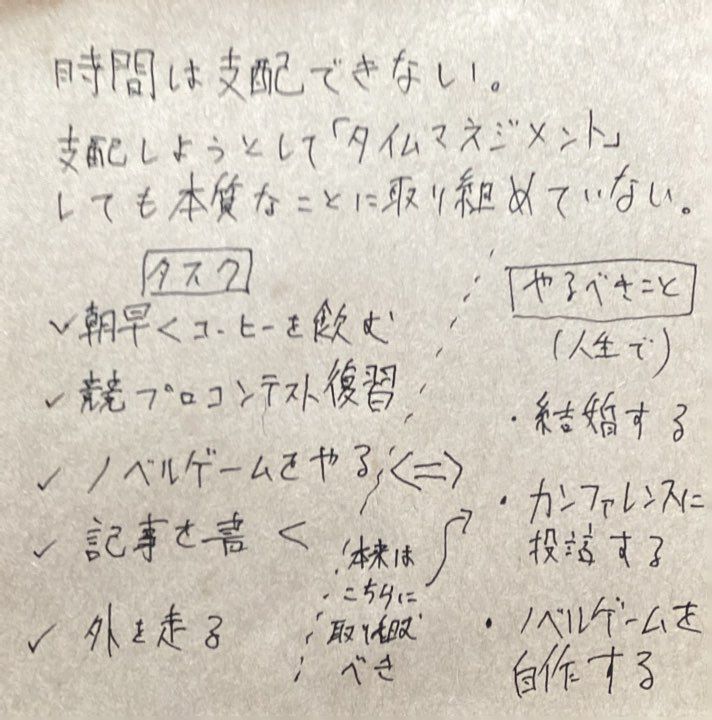 時間は支配できない。
支配しようとして「タイムマネジメント」
しても本質なことに取り組めていない。
タスク
✓ 朝早くコーヒーを飲む
✓ 競プロコンテスト復習
✓ ノベルゲームをやる
✓ 記事を書く
✓ 外を走る
<=>
本来は
こちらに
取り組む
べき
やるべきこと
(人生で)
・結婚する
・カンファレンスに
投稿する
・ノベルゲームを
自作する